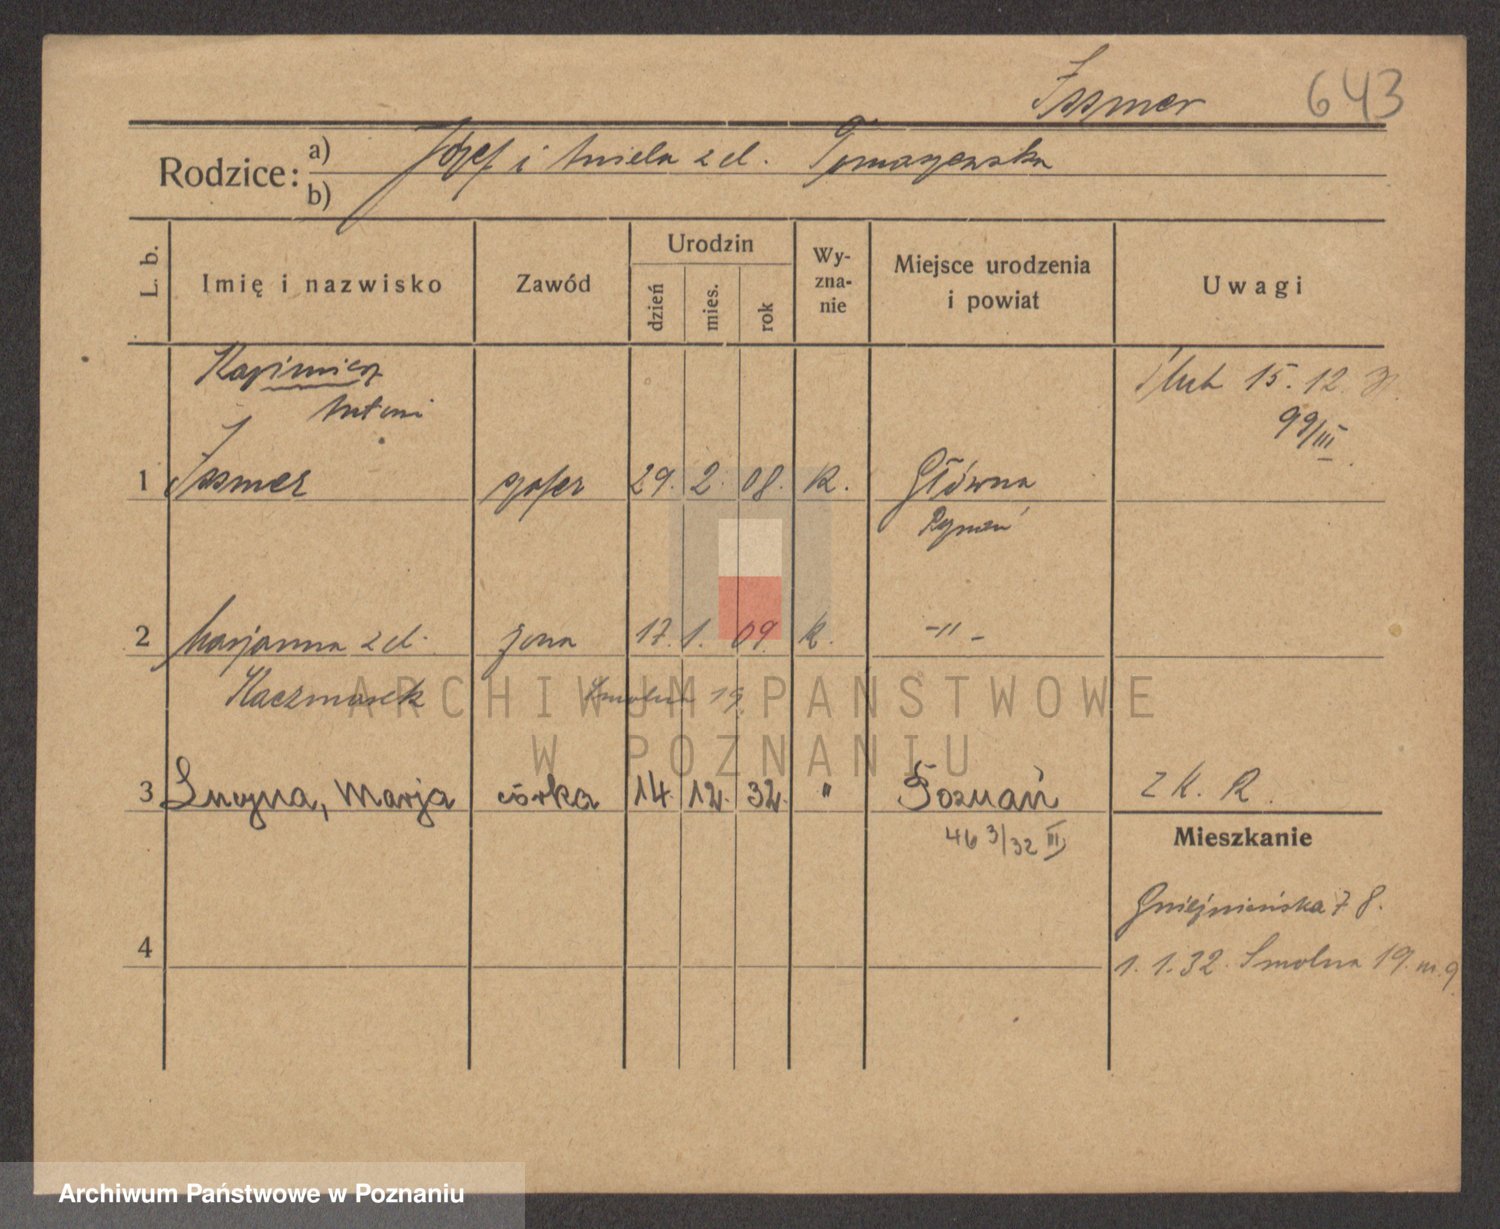 Issmer 643
Rodzice: a) Józef i Aniela z d. Tomaszewska
b)
L. b. Imię i nazwisko Zawód Urodzin dzień mies. rok Wy-zna-nie Miejsce urodzenia i powiat Uwagi
Kazimierz
Antoni
Ślub 15. 12. 31.
99/III
1 Issmer szofer 29. 2. 08. R. Główna
Poznań
2 Marjanna z d. żona 17. 1. 09. k. -"-
Kaczmarek Smolna 19.
3 Marja córka 14. 12. 32. " Poznań z k. R.
46 3/32 III
Mieszkanie
Gnieźnieńska 78.
4
1. 1. 32. Smolna 19. m. 9
ARCHIWUM PAŃSTWOWE
W POZNANIU
Archiwum Państwowe w Poznaniu